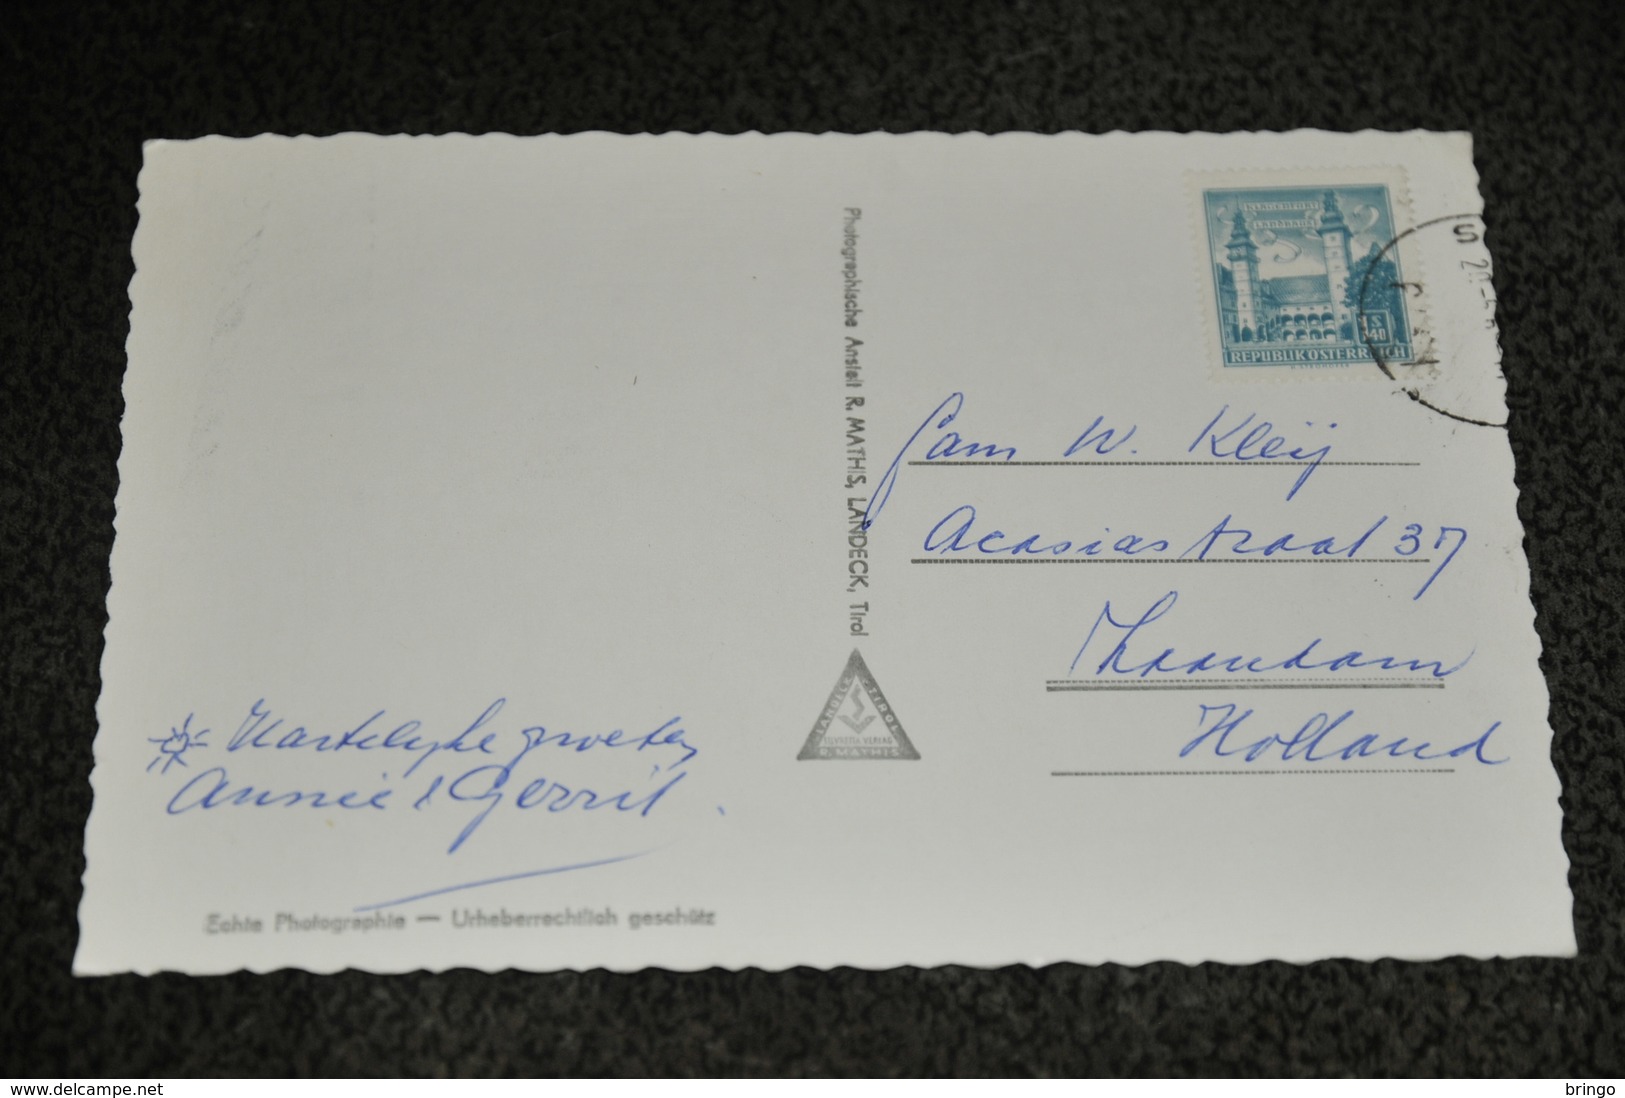 KLAGENFURT
LANDHAUS
S 1.40
REPUBLIK ÖSTERREICH
S
20.-5.
Photographische Anstalt R. MATHIS, LANDECK, Tirol
Fam W. Kleij
Acasiastraat 37
Zaandam
Holland
LANDECK - TIROL
VERLAG
R. MATHIS
Hartelyke groeten
Annie & Gerrit.
Echte Photographie — Urheberrechtlich geschütz
www.delcampe.net
bringo